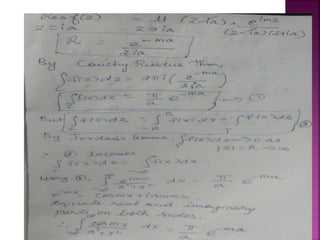 Res f(z) = lt (z-ia) × e^{imz}
z=ia z→ia (z-ia)(z+ia)
R = e^{-ma} / 2ia
By Cauchy Residue Thm,
∫_c f(z)dz = 2πi (e^{-ma} / 2ia)
∫_c f(z)dz = π/a e^{-ma} → ①
But ∫_c f(z)dz = ∫_{-R}^{R} f(x)dx + ∫ f(z)dz ②
By Jordan's lemma, ∫ f(z)dz → 0 as
|z| = R → ∞
∴ ② becomes
∫_c f(z)dz = ∫_{-∞}^{∞} f(x)dx
Using ①, ∫_{-∞}^{∞} e^{imx} / a²+x² dx = π/a e^{-ma}
e^{imx} = cosmx + isinmx
Equate real and imaginary
parts on both sides.
∴ ∫_{-∞}^{∞} cosmx / a²+x² dx = π/a e^{-ma}